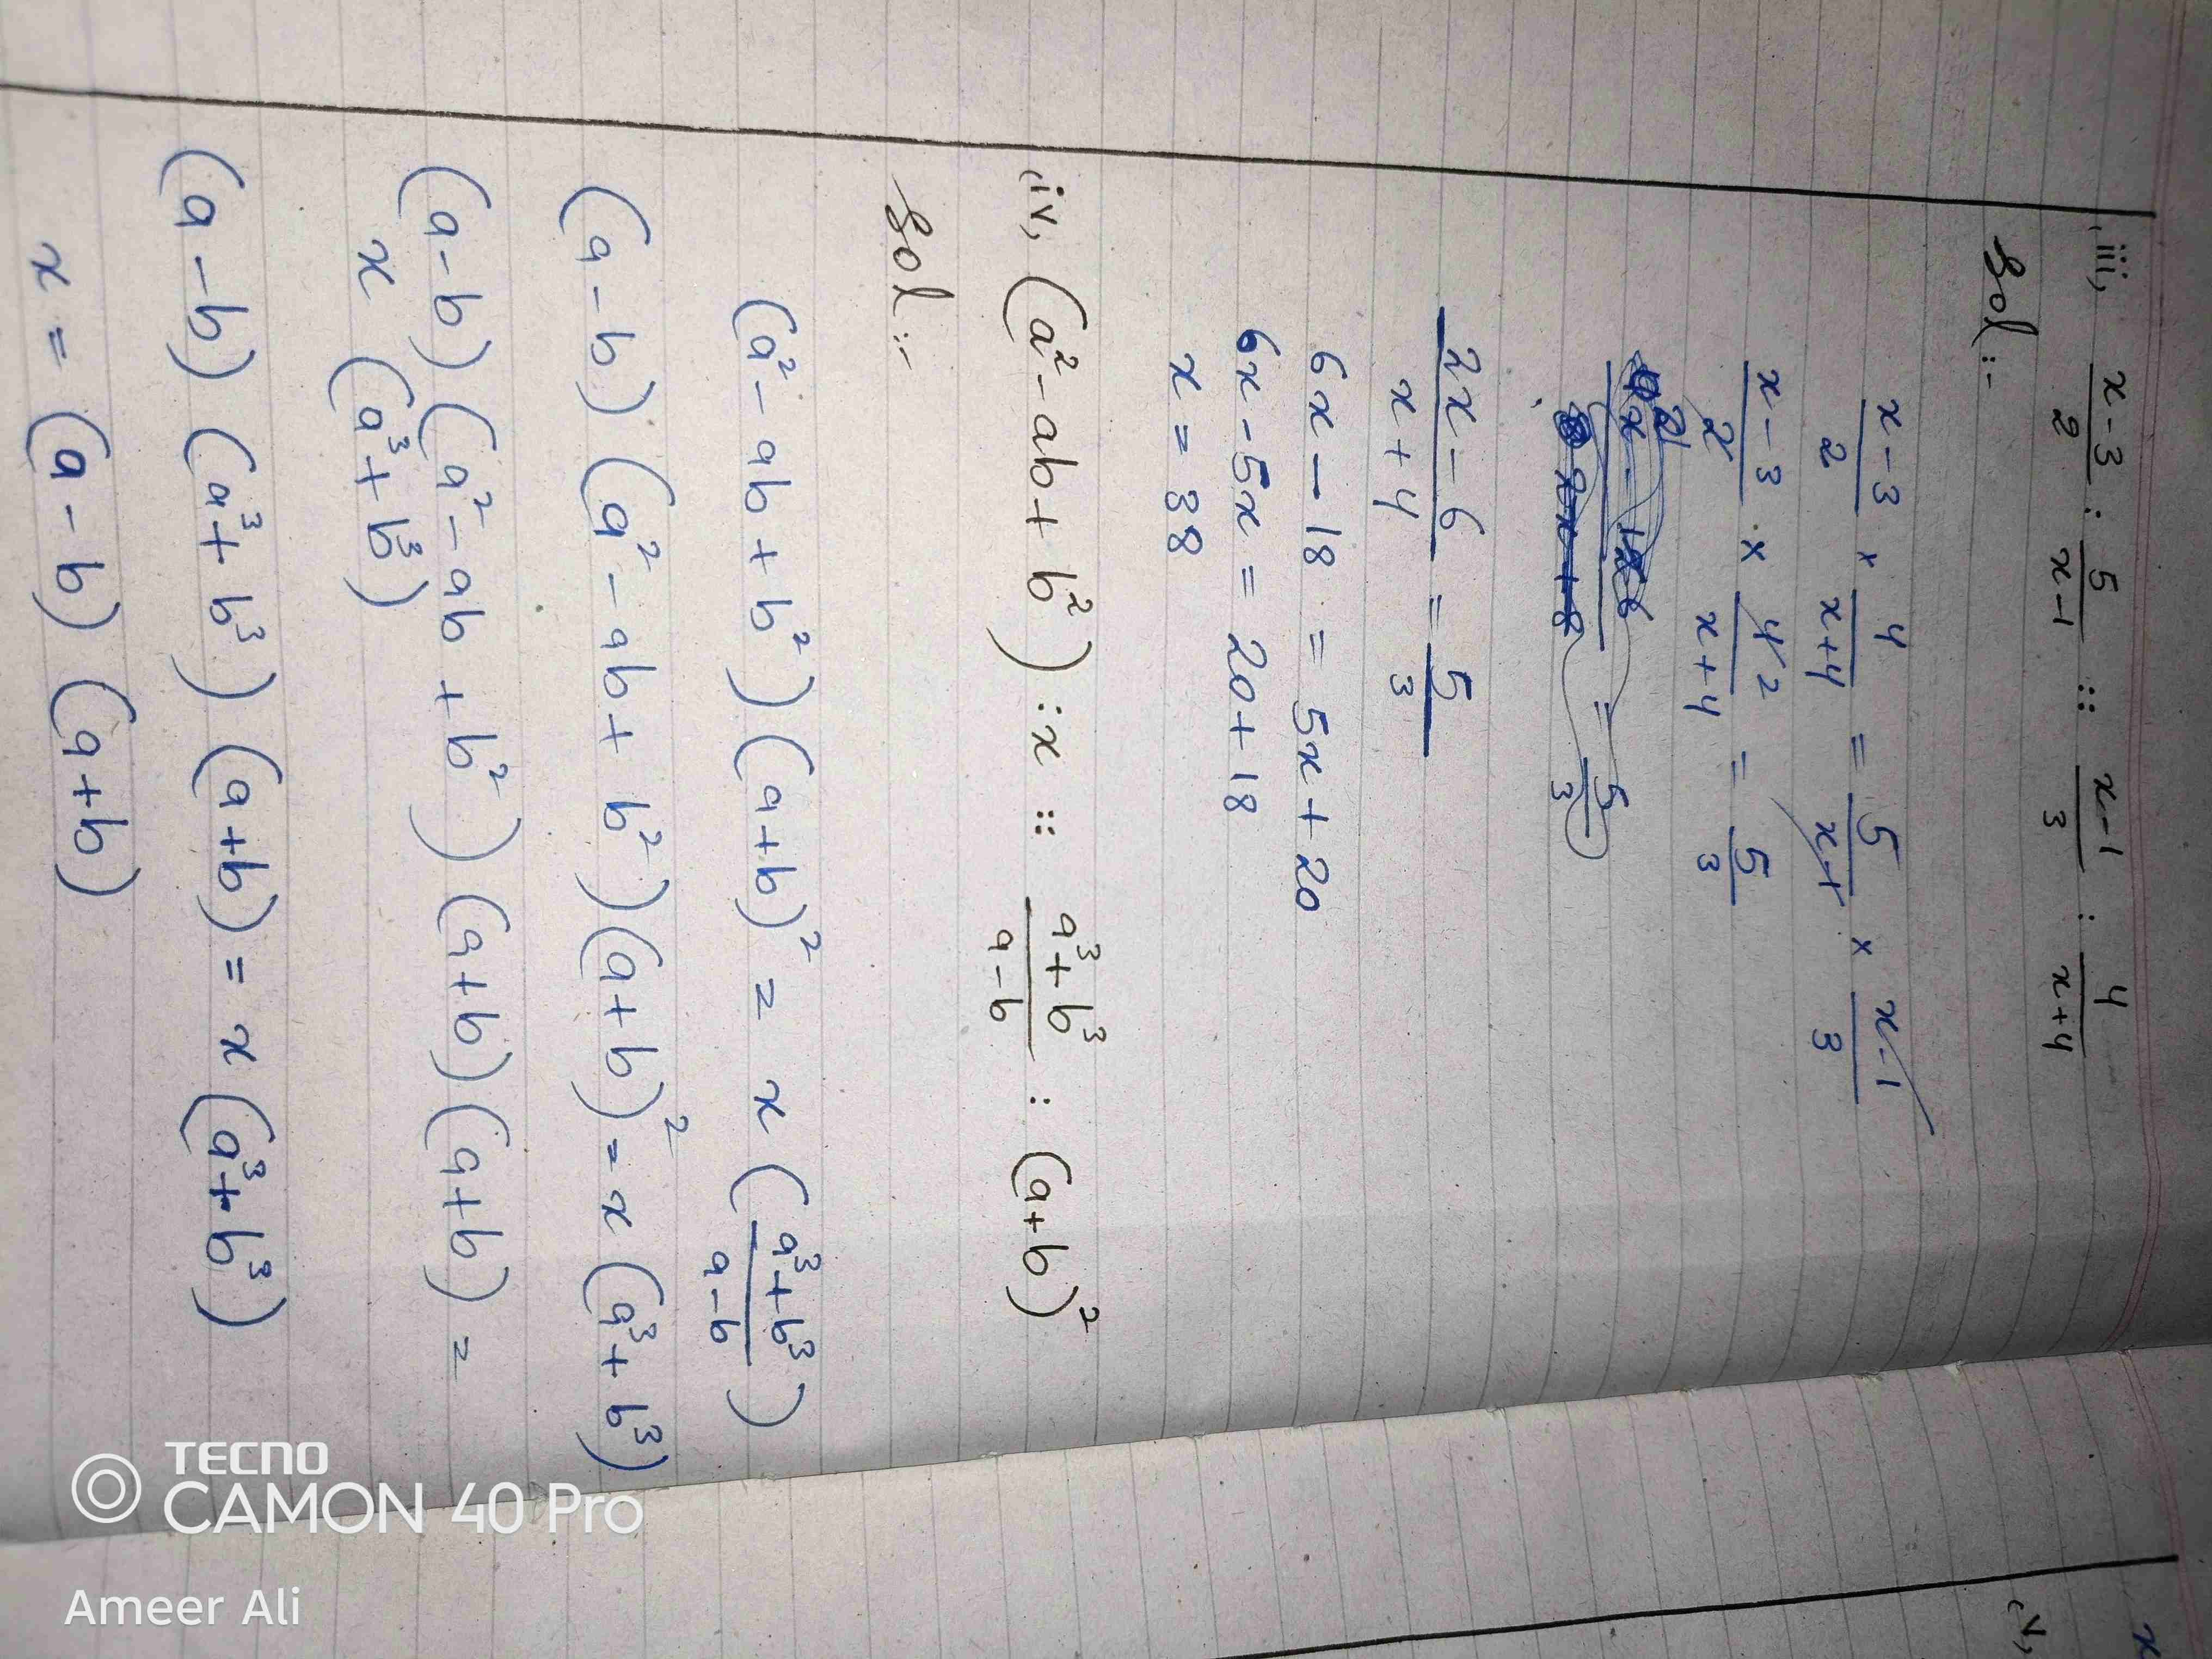 (iii) x-3/2 : 5/x-1 :: x-1/3 : 4/x+4
Sol:-
x-3/2 × 4/x+4 = 5/x-1 × x-1/3
x-3/2 × 4 2/x+4 = 5/3
= 5/3
2x-6/x+4 = 5/3
6x - 18 = 5x + 20
6x - 5x = 20 + 18
x = 38
(iv) (a² - ab + b²) : x :: a³+b³/a-b : (a+b)²
Sol:-
(a² - ab + b²) (a+b)² = x (a³+b³/a-b)
(a-b) (a² - ab + b²) (a+b)² = x (a³ + b³)
(a-b) (a² - ab + b²) (a+b) (a+b) =
x (a³ + b³)
(a-b) (a³ + b³) (a+b) = x (a³ + b³)
x = (a-b) (a+b)
x
(v)
TECNO
CAMON 40 Pro
Ameer Ali